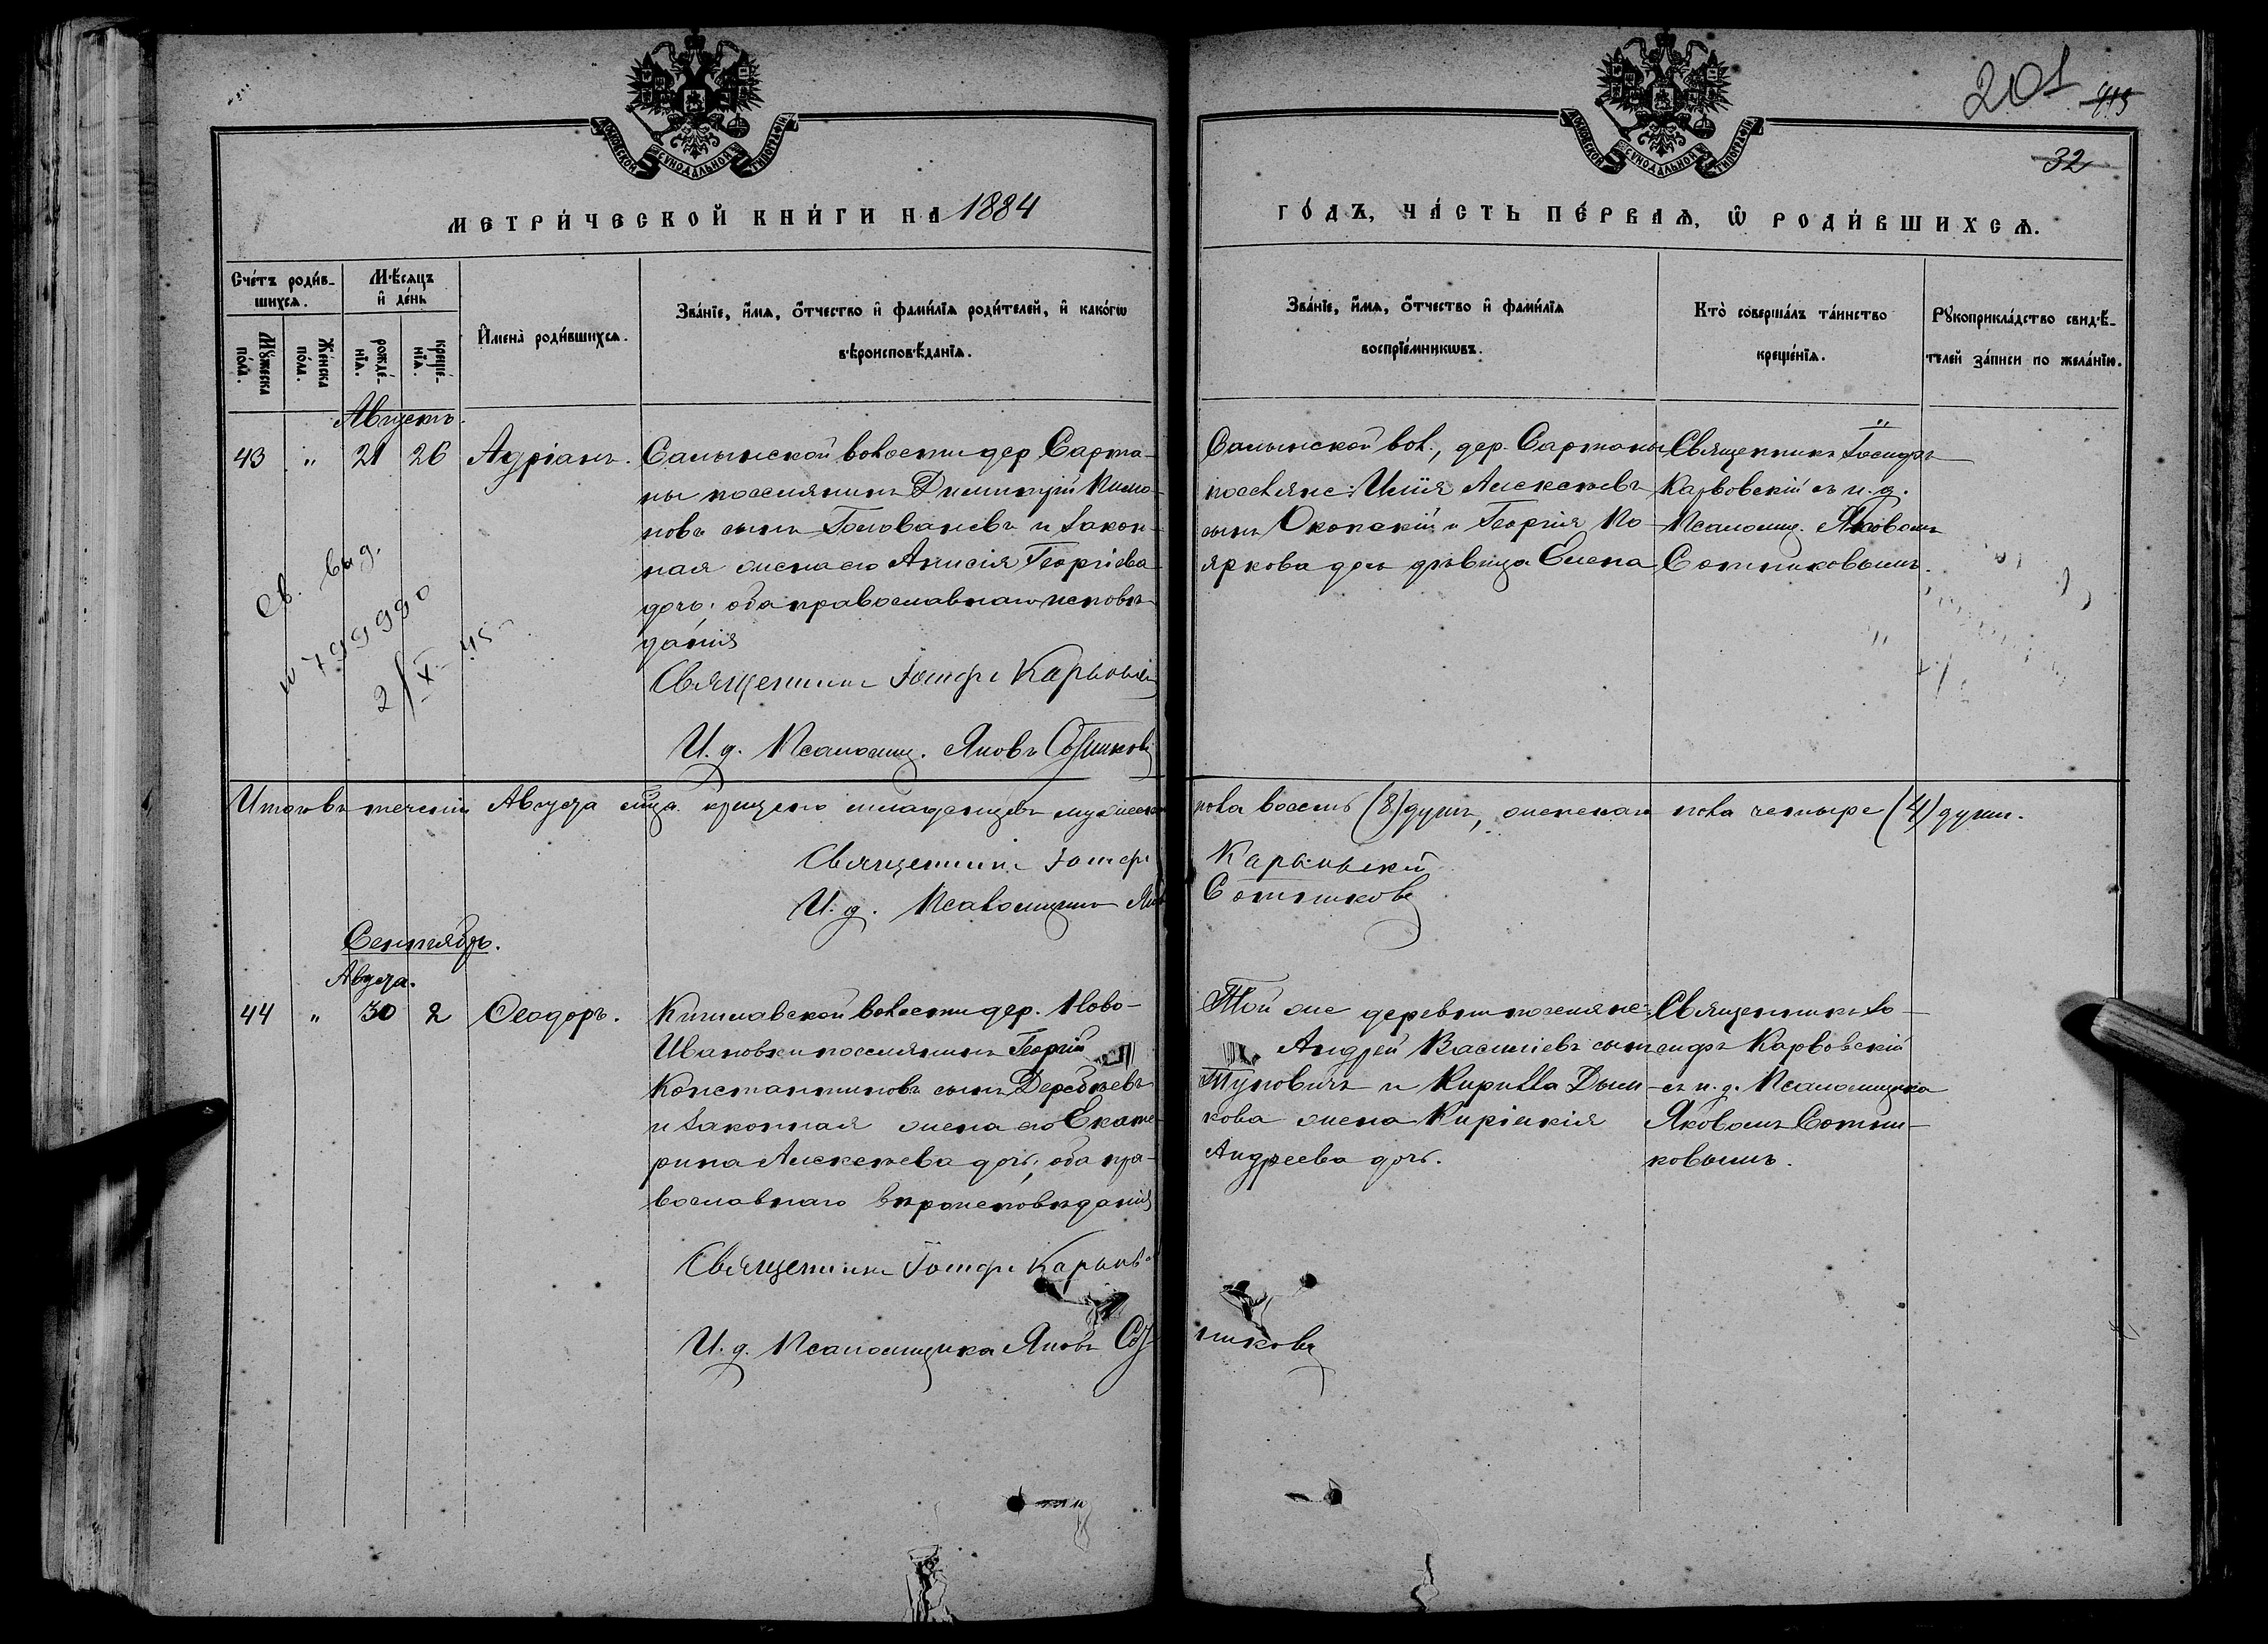 201 415
32
МОСКОВСКОЙ СѴНОДАЛЬНОЙ ТИПОГРАФІИ
МОСКОВСКОЙ СѴНОДАЛЬНОЙ ТИПОГРАФІИ
МЕТРИ́ЧЕСКОЙ КНИ́ГИ НА 1884
ГО́ДЪ, ЧА́СТЬ ПЕ́РВАѦ, Ѿ РОДИ́ВШИХСѦ.
Сче́тъ роди́в-
шихсѧ.
Мꙋ́жеска
по́ла.
Же́нска
по́ла.
Мѣ́сѧцъ
и҆ де́нь
рожде́-
нїѧ.
креще́-
нїѧ.
И҆мена̀ роди́вшихсѧ.
Зва́нїе, и҆́мѧ, о҆́тчество и҆ фами́лїѧ роди́телей, и҆ како́гѡ
вѣроисповѣ́данїѧ.
Зва́нїе, и҆́мѧ, о҆́тчество и҆ фами́лїѧ
воспрїе́мникѡвъ.
Кто̀ соверша́лъ та́инство
креще́нїѧ.
Рꙋкоприкла́дство свидѣ́-
телей за́писи по жела́нїю.
Августъ.
43 " 21 26 Адріанъ.
Салынской волости дер Сарта-
ны поселянинъ Димитрій
новъ сынъ Голованевъ и закон-
ная жена его Анисія Георгіева
дочь; оба православнаго исповѣ-
данія
Священникъ Іосифъ Карвовскій
И. д. Псаломщ. Яковъ Сотниковъ
Салынской вол., дер. Сартаны
поселяне: Илія Алексѣевъ
сынъ и Георгія По-
яркова дочь дѣвица Елена
Священникъ Іосифъ
Карвовскій съ и. д.
Псаломщ. Яковомъ
Сотниковымъ.
Св. выд.
№ 799990
2/X-45
Итого въ теченіи Августа м-ца крещено младенцевъ мужеска пола восемь (8) душъ, женскаго пола четыре (4) души.
Священникъ Іосифъ Карвовскій
И. д. Псаломщика Яковъ Сотниковъ
Сентябрь.
Августа.
44 " 30 2 Ѳеодоръ.
волости дер. Ново-
Ивановки поселянинъ Георгій
Константиновъ сынъ Деребчевъ
и законная жена его Екате-
рина Алексѣева дочь; оба пра-
вославнаго вѣроисповѣданія
Священникъ Іосифъ Карвовс
И. д. Псаломщика Яковъ Сотниковъ
Той же деревни поселяне:
Андрей Василіевъ сынъ
Туповичъ и Кирилла Дым-
кова жена Кирі́акія
Андреева дочь.
Священникъ Іо-
сифъ Карвовскій
съ и. д. Псаломщика
Яковомъ Сотни-
ковымъ.